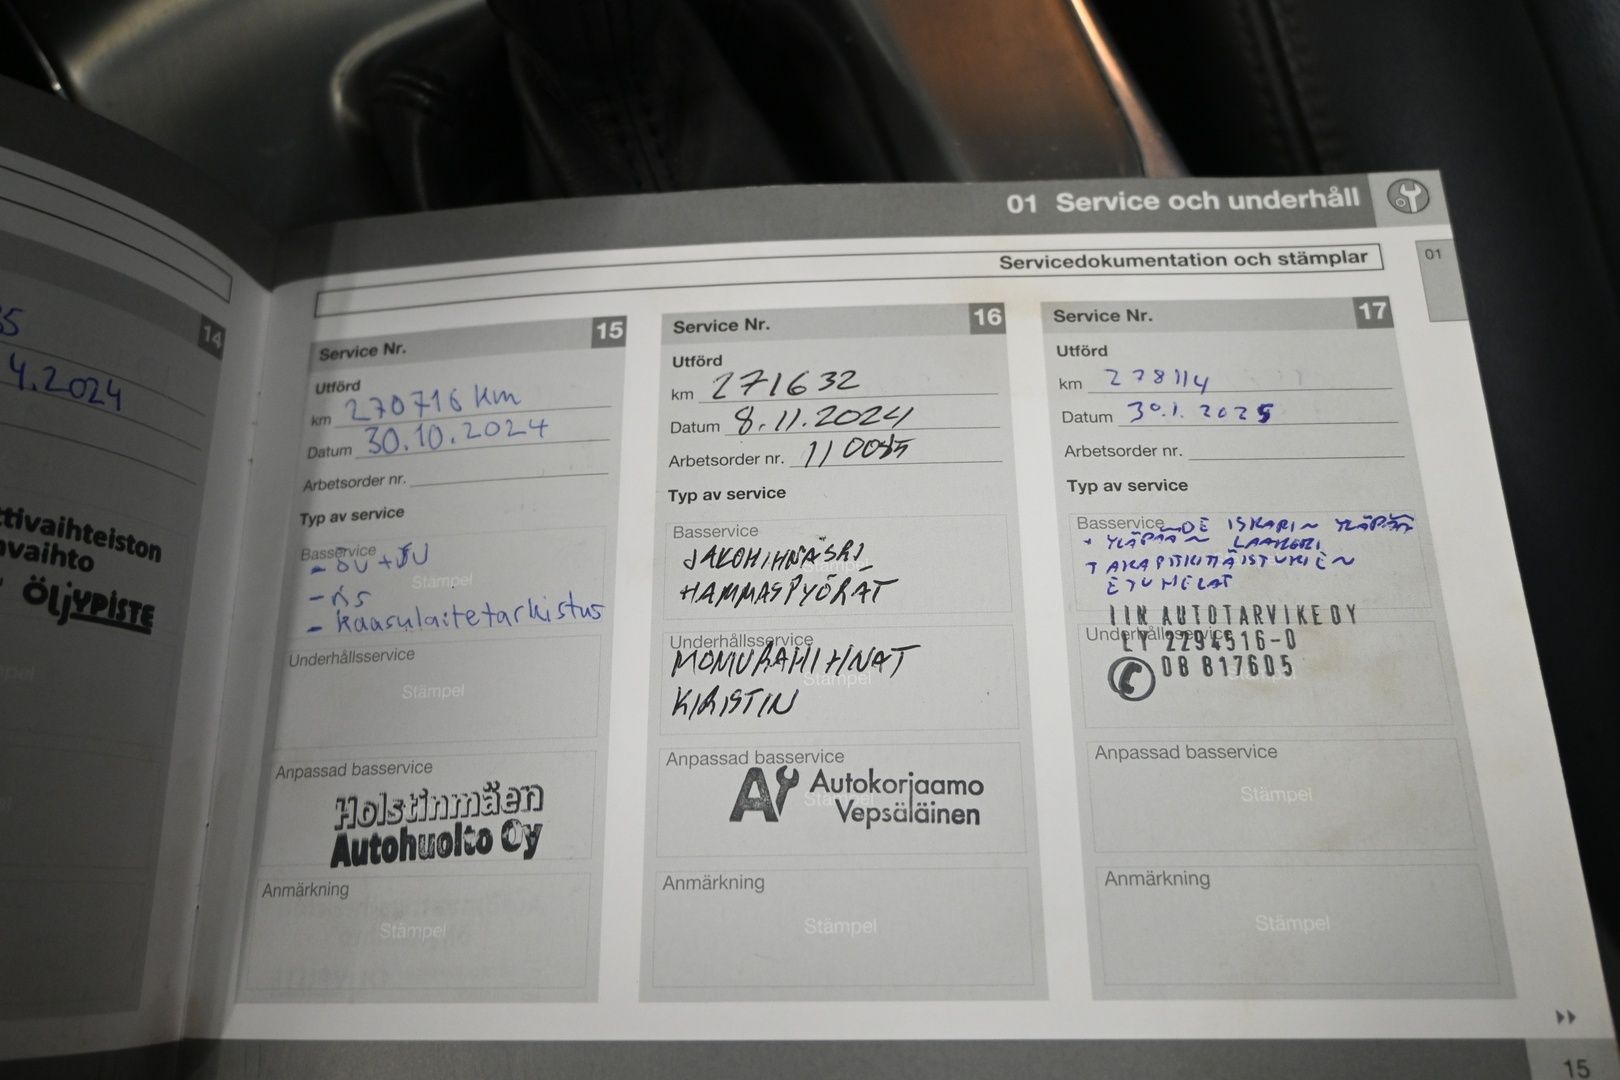 01 Service och underhåll
Servicedokumentation och stämplar
01
14
4.2024
ttivaihteiston
nvaihto
ÖljYPISTE
Service Nr. 15
Utförd
km 270716 km
Datum 30.10.2024
Arbetsorder nr.
Typ av service
Basservice
- ÖV + JV
Stämpel
- RS
- kaasulaitetarkistus
Underhållsservice
Stämpel
Anpassad basservice
Holstinmäen
Autohuolto Oy
Anmärkning
Stämpel
Service Nr. 16
Utförd
km 271632
Datum 8.11.2024
Arbetsorder nr. 110085
Typ av service
Basservice
JAKOHIHNASRJ
Stämpel
HAMMASPYÖRAT
Underhållsservice
MOMURAHIHNAT
Stämpel
KIRISTIN
Anpassad basservice
Autokorjaamo
Stämpel
Vepsäläinen
Anmärkning
Stämpel
Service Nr. 17
Utförd
km 278114
Datum 30.1.2025
Arbetsorder nr.
Typ av service
Basservice OE ISKARIN YLÄPÄÄ
+ YLÄPÄÄN LAAKERI
TAKAPITKITTÄISTUKIEN
ETUHELAT
IIN AUTOTARVIKE OY
Underhållsservice
LY 2294516-0
08 817605
Anpassad basservice
Stämpel
Anmärkning
Stämpel
15